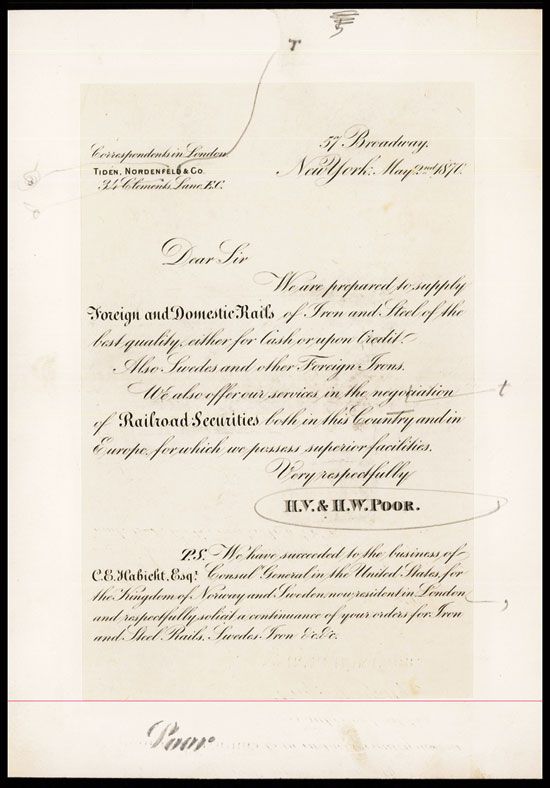 57 Broadway.
Correspondents in London.
New York. May 2nd 1870.
TIDEN, NORDENFELD & CO.
34 Clements Lane. E.C.
Dear Sir
We are prepared to supply
Foreign and Domestic Rails of Iron and Steel of the
best quality, either for Cash or upon Credit.
Also Swedes and other Foreign Irons.
We also offer our services in the negociation t
of Railroad Securities both in this Country and in
Europe, for which we possess superior facilities.
Very respectfully
H.V. & H.W. POOR.
P.S. We have succeeded to the business of
C.E. Habicht, Esqr. Consul General in the United States, for
the Kingdom of Norway and Sweden, now resident in London ,
and respectfully solicit a continuance of your orders for Iron
and Steel Rails, Swedes Iron &c &c.
Poor